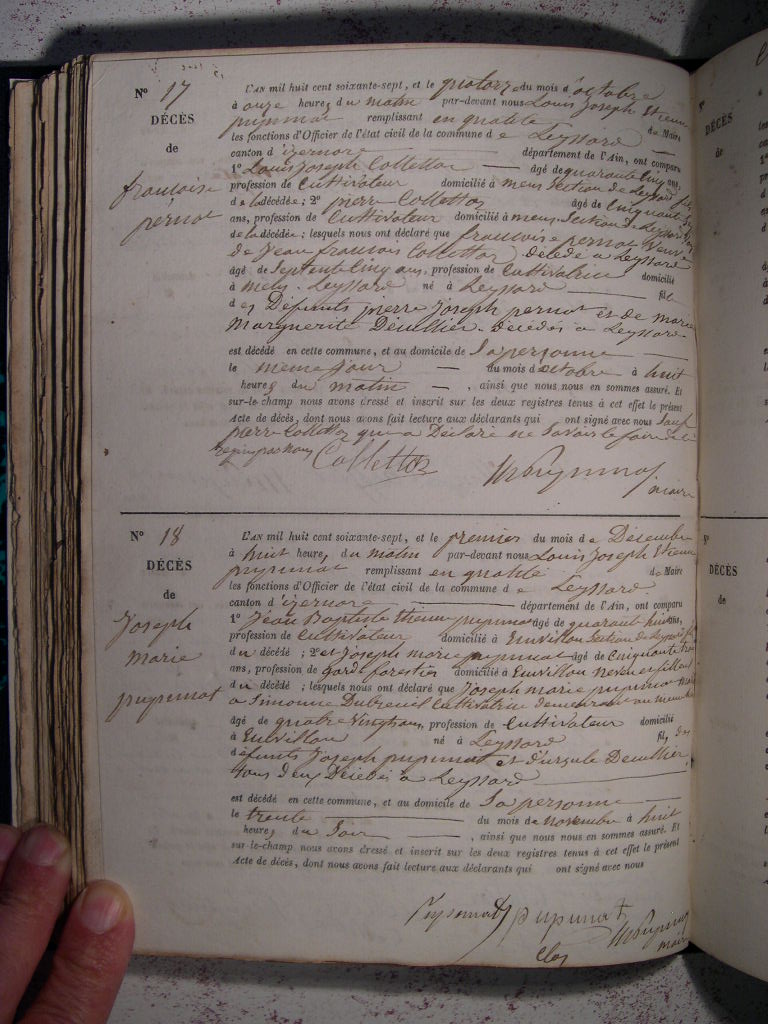 No 17
DÉCÈS
de
francoise
pernot
L'AN mil huit cent soixante-sept, et le quatorze du mois d'octobre
à onze heures du matin par-devant nous Louis Joseph Etienne
pupunat remplissant en qualité de Maire
les fonctions d'Officier de l'état civil de la commune de Leyssard
canton d'izernore département de l'Ain, ont comparu
1o Louis Joseph Collettaz âgé de quarante cinq ans,
profession de Cultivateur domicilié à mens section de Leyssard fils
de la décédée; 2o pierre Collettaz âgé de Cinquante
ans, profession de Cultivateur domicilié à mens section de Leyssard
de la décédée; lesquels nous ont déclaré que francoise pernot veuve
de Jean francois Collettaz décédé a Leyssard
âgé de Septente Cinq ans, profession de Cultivatrice domicilié
à mens Leyssard né à Leyssard fil
des Défunts pierre Joseph pernot et de marie
Marguerite Deuillier décédés a Leyssard
est décédé en cette commune, et au domicile de Sa personne
le meme jour du mois d'octobre à huit
heures du matin, ainsi que nous nous en sommes assuré. Et
sur-le-champ nous avons dressé et inscrit sur les deux registres tenus à cet effet le présent
Acte de décès, dont nous avons fait lecture aux déclarants qui ont signé avec nous sauf
pierre Collettaz qui a Déclaré ne Savoir le faire de ce
requis par nous Collettaz
maire
No 18
DÉCÈS
de
Joseph
Marie
pupunat
L'AN mil huit cent soixante-sept, et le premier du mois de Décembre
à huit heures du matin par-devant nous Louis Joseph Etienne
pupunat remplissant en qualité de Maire
les fonctions d'Officier de l'état civil de la commune de Leyssard
canton d'izernore département de l'Ain, ont comparu
1o Jean Baptiste Etienne pupunat âgé de quarante huit ans,
profession de Cultivateur domicilié à Emvillon section de Leyssard fils
du décédé; 2o et Joseph marie pupunat âgé de Cinquante trois
ans, profession de garde forestier domicilié à Emvillon neveu
du décédé; lesquels nous ont déclaré que Joseph marie pupunat
a Simonne Dutreuil Cultivatrice demeurant au meme lieu
âgé de quatre Vingt ans, profession de Cultivateur domicilié
à Emvillon né à Leyssard fils des
défunts Joseph pupunat et d'ursule Deuillier
tous deux Décédés a Leyssard
est décédé en cette commune, et au domicile de Sa personne
le trente du mois de novembre à huit
heures du Soir, ainsi que nous nous en sommes assuré. Et
sur-le-champ nous avons dressé et inscrit sur les deux registres tenus à cet effet le présent
Acte de décès, dont nous avons fait lecture aux déclarants qui ont signé avec nous
pupunat pupunat
maire
Clos
DÉCÈS
de
DÉCÈS
de